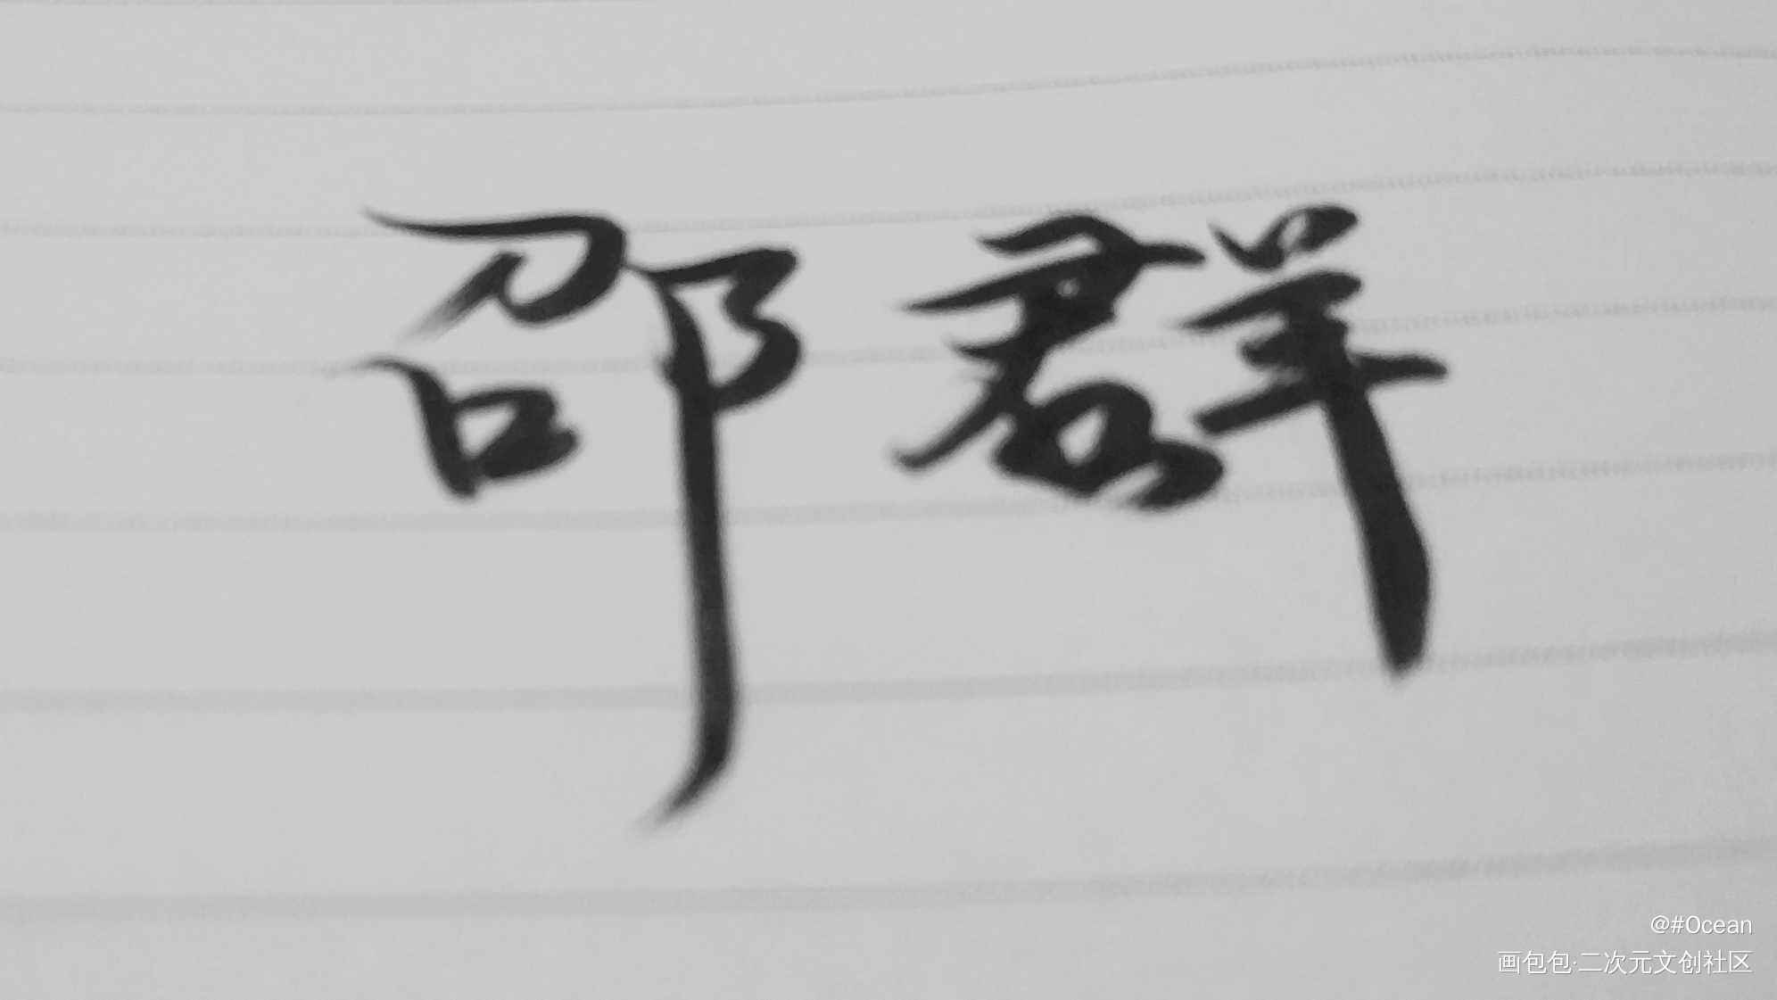 邵群
@#Ocean
画包包·二次元文创社区